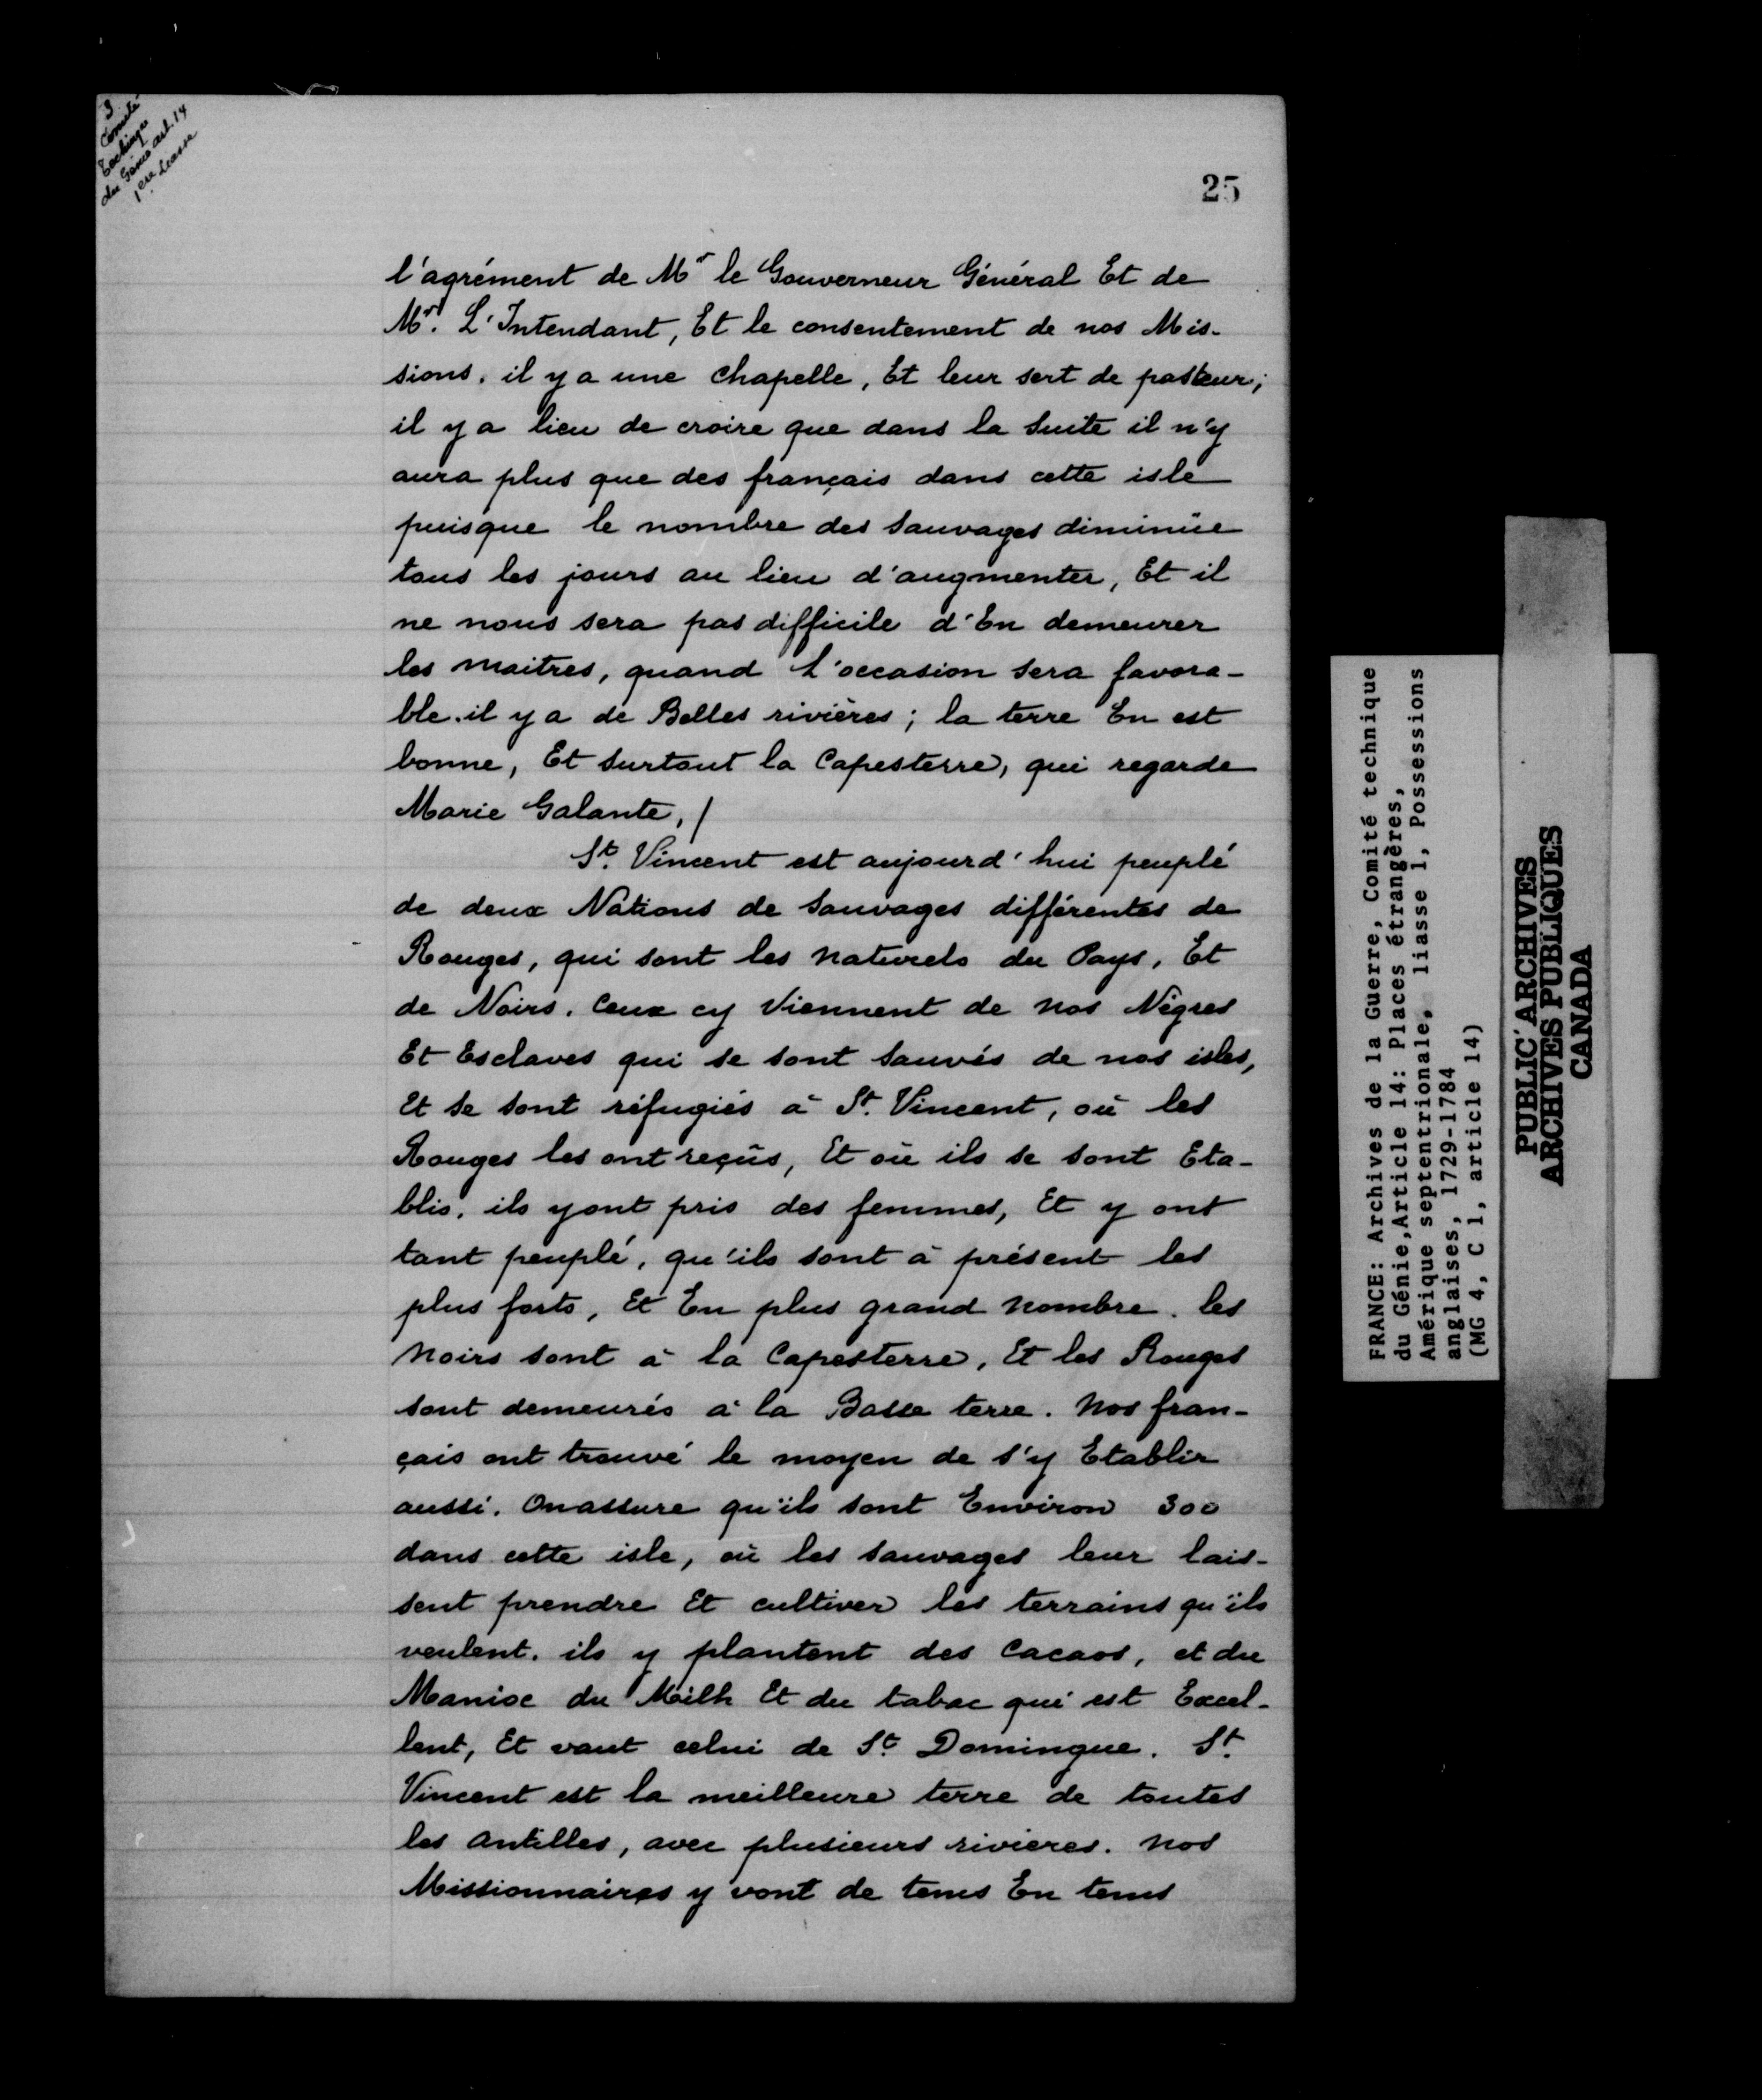 3
Comité
Technique
du Génie art. 14
1ere Liasse
25
l'agrément de Mr le Gouverneur Général Et de
Mr. L'Intendant, Et le consentement de nos Mis-
sions. il y a une chapelle, Et leur sert de pasteur;
il y a lieu de croire que dans la suite il n'y
aura plus que des français dans cette isle
puisque le nombre des sauvages diminüe
tous les jours au lieu d'augmenter, Et il
ne nous sera pas difficile d'En demeurer
les maitres, quand l'occasion sera favora-
ble. il y a de Belles rivières; la terre En est
bonne, Et surtout la Capesterre, qui regarde
Marie Galante, /
St. Vincent est aujourd'hui peuplé
de deux Nations de sauvages différentes de
Rouges, qui sont les naturels du Pays, Et
de Noirs. Ceux cy viennent de nos Nègres
Et Esclaves qui se sont sauvés de nos isles,
Et se sont réfugiés à St. Vincent, où les
Rouges les ont reçûs, Et où ils se sont Eta-
blis. ils y ont pris des femmes, Et y ont
tant peuplé, qu'ils sont à présent les
plus forts, Et En plus grand nombre. les
noirs sont à la Capesterre, Et les Rouges
sont demeurés à la Basse terre. Nos fran-
çais ont trouvé le moyen de s'y Etablir
aussi. On assure qu'ils sont Environ 300
dans cette isle, où les sauvages leur lais-
sent prendre Et cultiver les terrains qu'ils
veulent. ils y plantent des cacaos, et du
Manioc du Milh Et du tabac qui est Excel-
lent, Et vaut celui de St. Domingue. St.
Vincent est la meilleure terre de toutes
les antilles, avec plusieurs rivieres. Nos
Missionnaires y vont de tems En tems
FRANCE: Archives de la Guerre, Comité technique
du Génie, Article 14: Places étrangères,
Amérique septentrionale, liasse 1, Possessions
anglaises, 1729-1784
(MG 4, C 1, article 14)
PUBLIC ARCHIVES
ARCHIVES PUBLIQUES
CANADA